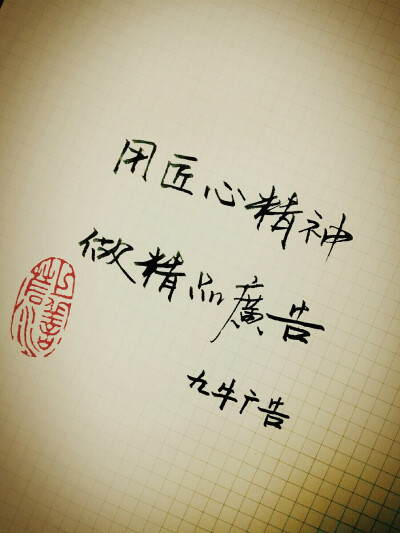 用匠心精神
做精品廣告
九牛广告